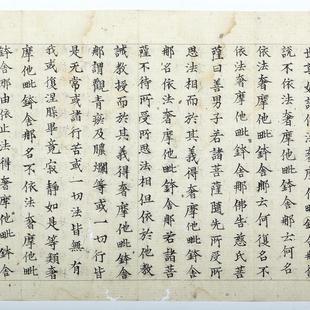 說不依法奢摩他毗鉢舍那云何名
依法奢摩他毗鉢舍那云何復名不
依法奢摩他毗鉢舍那佛告慈氏菩
薩曰善男子若諸菩薩隨先所受所
思法相而於其義得奢摩他毗鉢舍
那名依法奢摩他毗鉢舍那若諸菩
薩不待所受所思法相但依於他教
誡教授而於其義得奢摩他毗鉢舍
那謂觀青瘀及膿爛等或一切行皆
是无常或諸行苦或一切法皆無有
我或復涅槃畢竟寂靜如是等類奢
摩他毗鉢舍那名不依法奢摩他毗
鉢舍那由依止法得奢摩他毗鉢舍